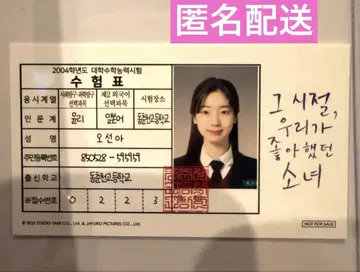 匿名配送
2004학년도 대학수학능력시험
수 험 표
응시계열 사회탐구·과학탐구 선택과목 제2외국어 선택과목 시험장소
인 문 계 윤리 일본어 동순천고등학교
성 명 오 선 아
주민등록번호 850528-
출신학교 동순천고등학교
※접수번호 0 2 2 3
그 시절,
우리가
좋아했던
소녀
© 2025 STUDIO TAKE CO., LTD. & JAYURO PICTURES CO., LTD.
NOT FOR SALE